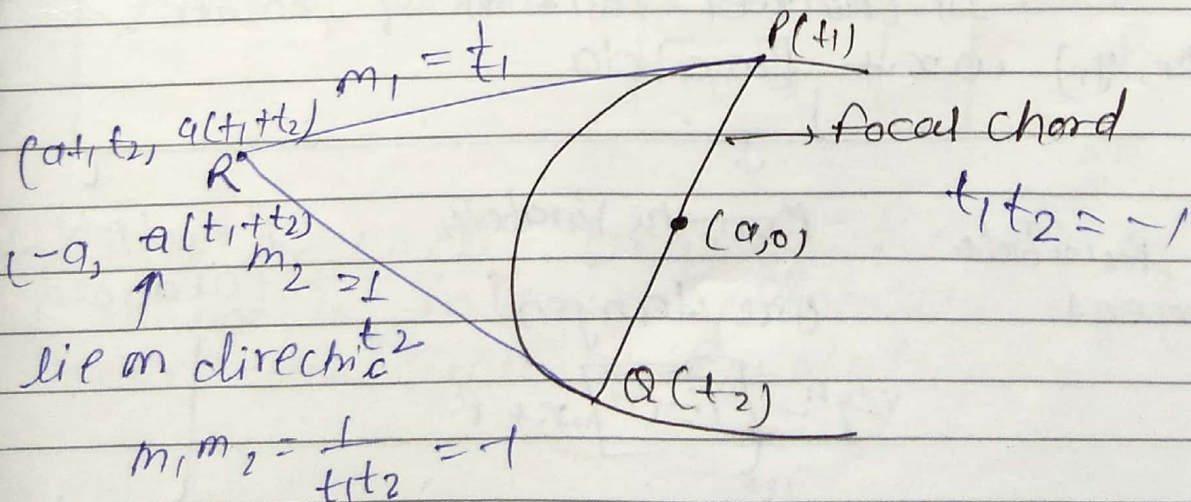 P(t1)
m1 = t1
(at1t2, a(t1+t2)
R
→ focal chord
t1t2 = -1
(a,0)
(-a, a(t1+t2)
m2 = 1
t2
lie on directric
Q(t2)
m1m2 = 1/t1t2 = -1